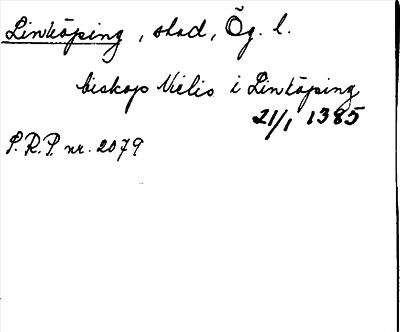 Linköping, stad, Ög. l.
biskop Nielis i Linköping
21/1 1385
S.R.P. nr. 2079